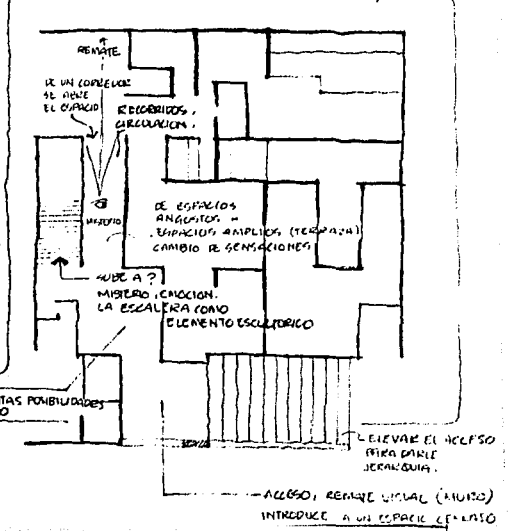 REMATE.
DE UN CORREDOR
SE ABRE
EL ESPACIO
RECORRIDOS,
CIRCULACION.
MISTERIO
DE ESPACIOS
ANGOSTOS A
ESPACIOS AMPLIOS (TERRAZA)
CAMBIO DE SENSACIONES
SUBE A ?
MISTERIO, EMOCION.
LA ESCALERA COMO
ELEMENTO ESCULTORICO
TAS POSIBILIDADES
O
ELEVAR EL ACCESO
PARA DARLE
JERARQUIA.
ACCESO, REMATE VISUAL (MURO)
INTRODUCE A UN ESPACIO